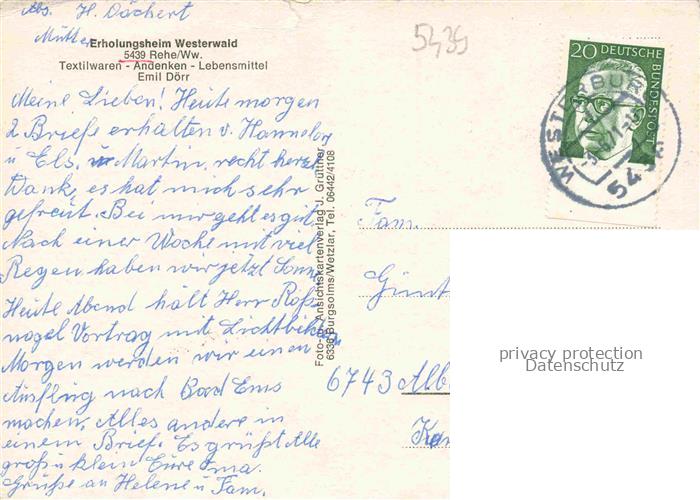 Abs. H. Dächert
Mütter
Erholungsheim Westerwald
5439 Rehe/Ww.
Textilwaren - Andenken - Lebensmittel
Emil Dörr
5439
20 DEUTSCHE BUNDESPOST
WESTERBUR
543
Meine Lieben! Heute morgen
2 Briefe erhalten v. Hannelor
u Els. u Martin. recht herzl
Dank, es hat mich sehr
gefreut. Bei mir geht es gut.
Nach einer Woche mit viel
Regen haben wir jetzt Sonne
Heute Abend hält Herr Röß
nagel Vortrag mit Lichtbildern
Morgen werden wir einen
Ausflug nach Bad Ems
machen. Alles andere in
einem Brief. Es grüßt Alle
groß u klein Eure Oma.
Grüße an Helene u Fam.
Foto- Ansichtskartenverlag J. Grüttner
6336 Burgsolms/Wetzlar, Tel. 06442/4108
Fam.
Günt
6743 Alb
privacy protection
Datenschutz